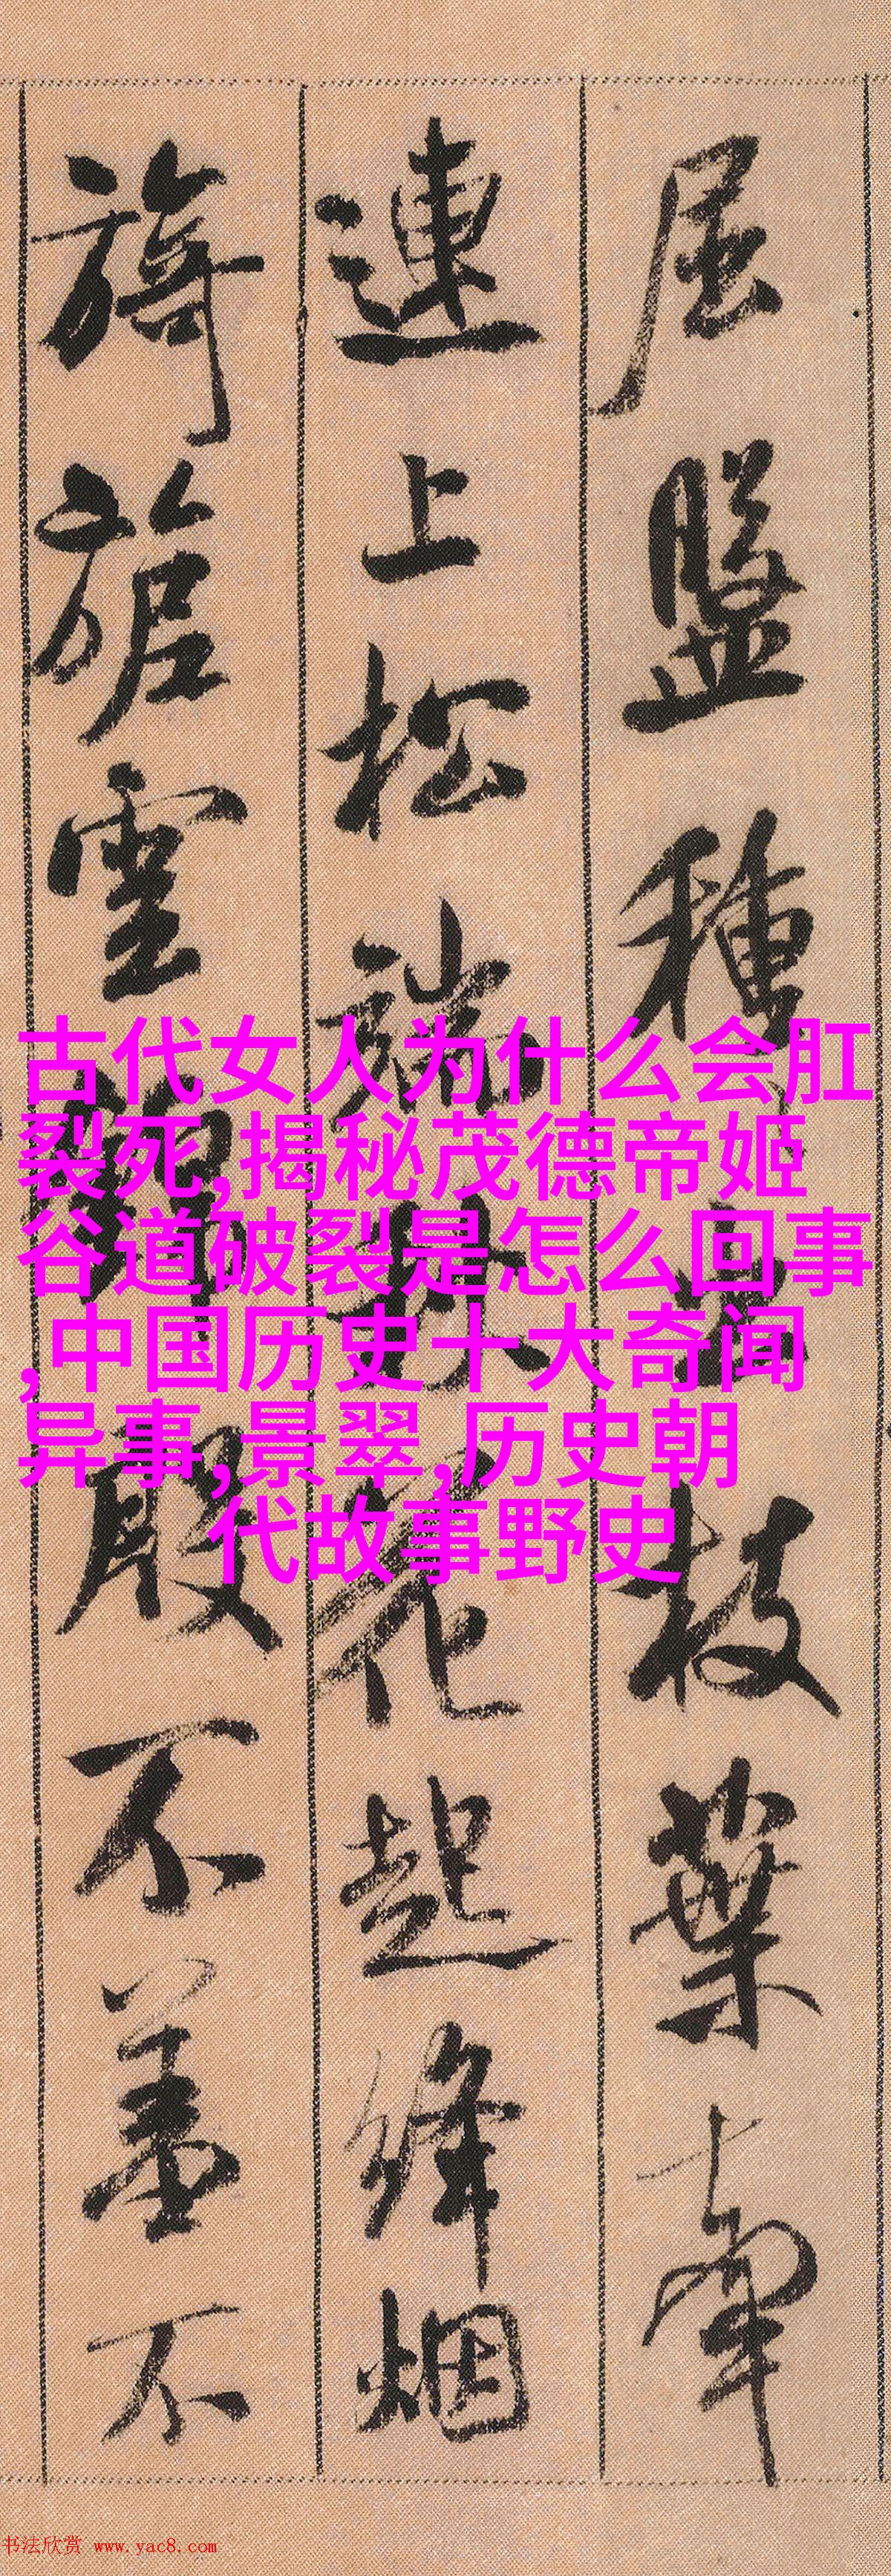 屈盤種種出枝葉牽
連上松端秋花起絳烟
旖旎雲錦殷不羞不
古代女人为什么会肛
裂死,揭秘茂德帝姬
谷道破裂是怎么回事
,中国历史十大奇闻
异事,景翠,历史朝
代故事野史
书法欣赏 www.yac8.com